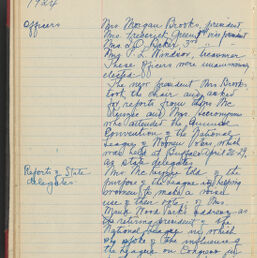 1924
Officers
Mrs. Morgan Brooks, president
Mrs. Frederick Green, vice president
Mrs. Baker, 2nd
Mrs. P. L. Windsor, treasurer
These officers were unanimously
elected.
The new president Mrs. Brooks
took the chair and asked
for reports from Mrs. Mc
and Mrs.
who attended the Annual
Convention of the National
League of Women Voters which
was held at Buffalo April 24-29,
as state delegates.
Reports of State
delegates
Mrs. told of the
purpose of the League as helping
women to make a
use of their vote, of Mrs.
Maud Wood Park's address as
the retiring president of the
National League in which
she spoke of the influence of
the League on Congress